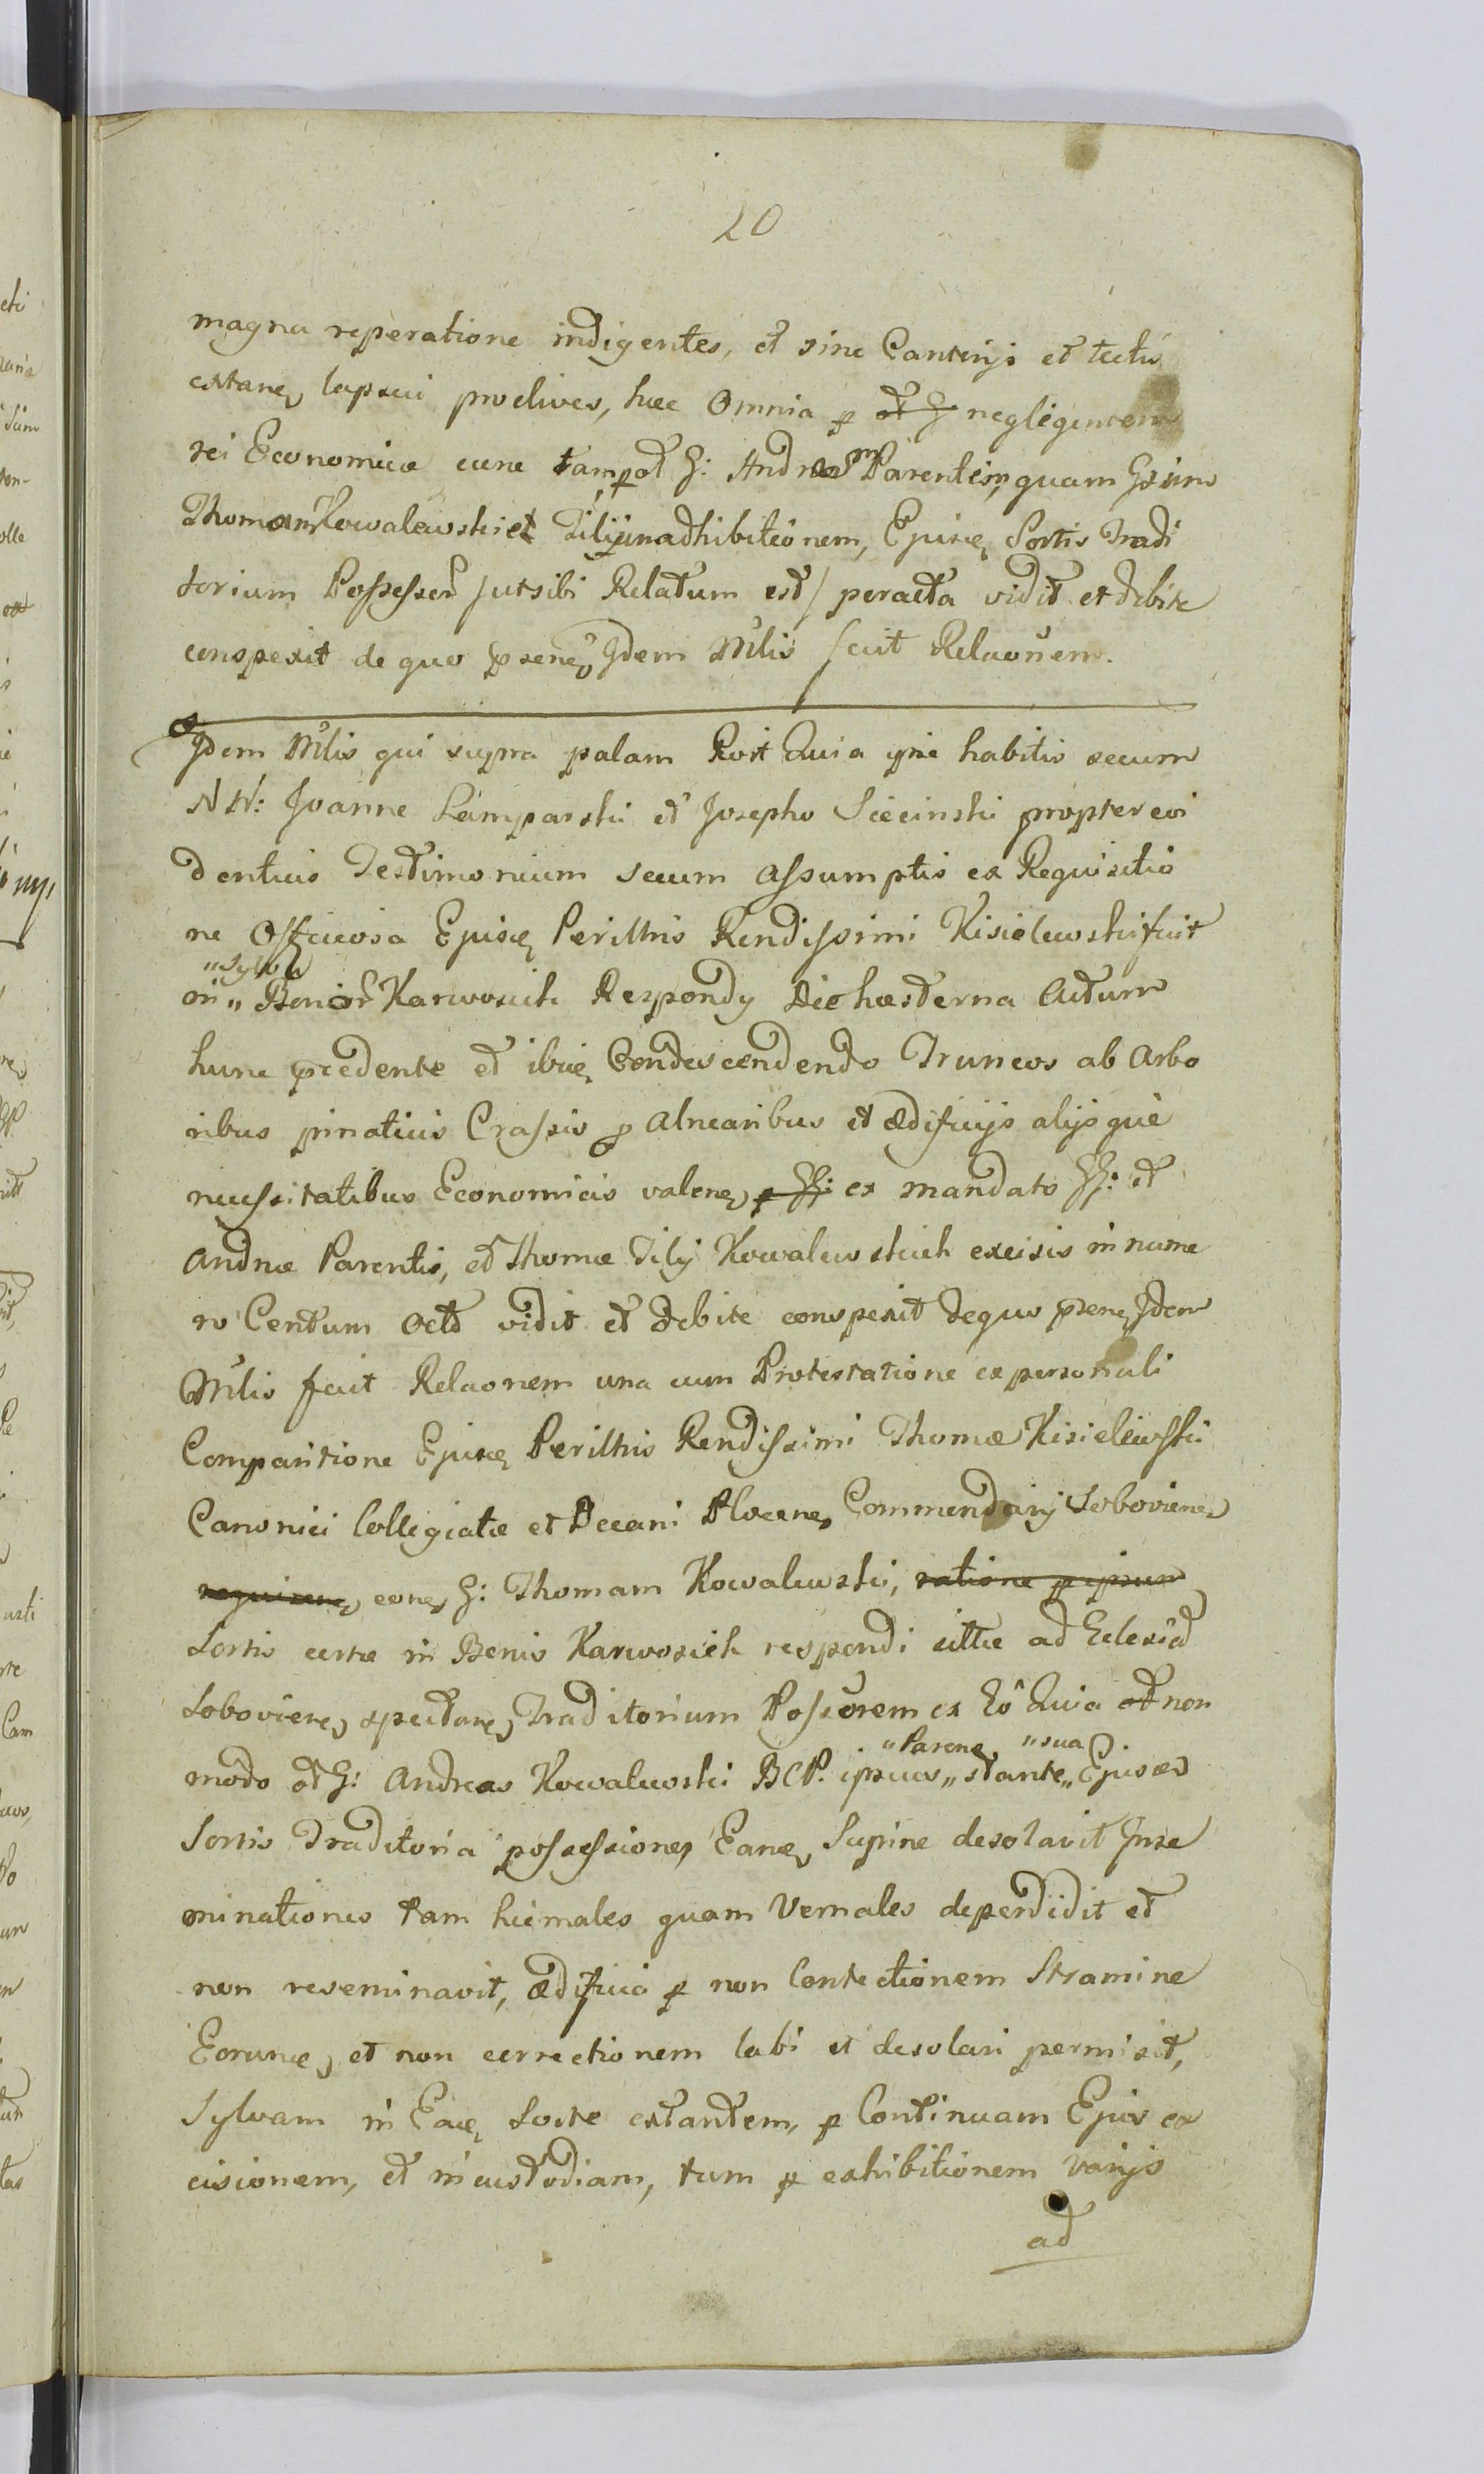 20
magna reperatione indigentes, et sine Canterijs et tectu
extanē, lapsui proclives, hæc Omnia p ot G negligentem
rei Economicæ cure tam p ot G: Andream Parentem, quam Gsum
Thomam Kowalewski et Filijmadhibitionem, Ejusē Sortis Tradi
torium Possessor /ut sibi Relatum est/ peracta vidit et debite
conspexit de quo præne Idem Mlis fecit Relaonem.
Idem Mlis qui supra palam Rost Quia ipse habitis secum
NN: Joanne Lamparski et Josepho Siecinski propter evi
dentius Testimonium secum Assumptis ex Requisitio
ne Officiosa Ejusē Perillris Rendissimi Kisielewski fuit
"Sylva
in" Bonor Karwosieck Respondy Die hæsterna Actum
hunc præcedente et ibiē Condescendendo Truncos ab Arbo
ribus pinaticis Crassis p Alnearibus et ædificijs alijsque
necessitatibus Economicis valenē, p GG: ex mandato GG: et
Andreæ Parentis, et Thomæ Filij Kowalewskich excisis in nume
ro Centum Octo vidit et debite conspexit de quo præne Idem
Mlis fecit Relaonem una cum Protestatione ex personali
Comparitione Ejusē Perillris Rendissimi Thomæ Kisielewski
Canonici Collegiatæ et Decani Plocenē, Commendarij Soboviene
requirenē, conē, G: Thomam Kowalewski, ratione p ipsum
Sortis certæ in Bonis Karwosieck respondi sittæ ad Eclesiā
Soboviene, spectanē, Traditorium Possorem ex Eo Quia ot non
"Parenē, "sua
modo ot G: Andreas Kowalewski BCP. ipsius" stante" Ejusē
Sortis Traditoria possessione, Eanē, Supine desolavit Inse
minationes tam hiemales quam Vernales deperdidit et
non reseminavit, ædificia p non Contectionem Stramine
Eorunē, et non correctionem labi et desolari permisit,
Sylvam in Eaē Sorte extantem, p Continuam Ejus ex
cisionem, et incustodiam, tum p exhibitionem Varijs
ad